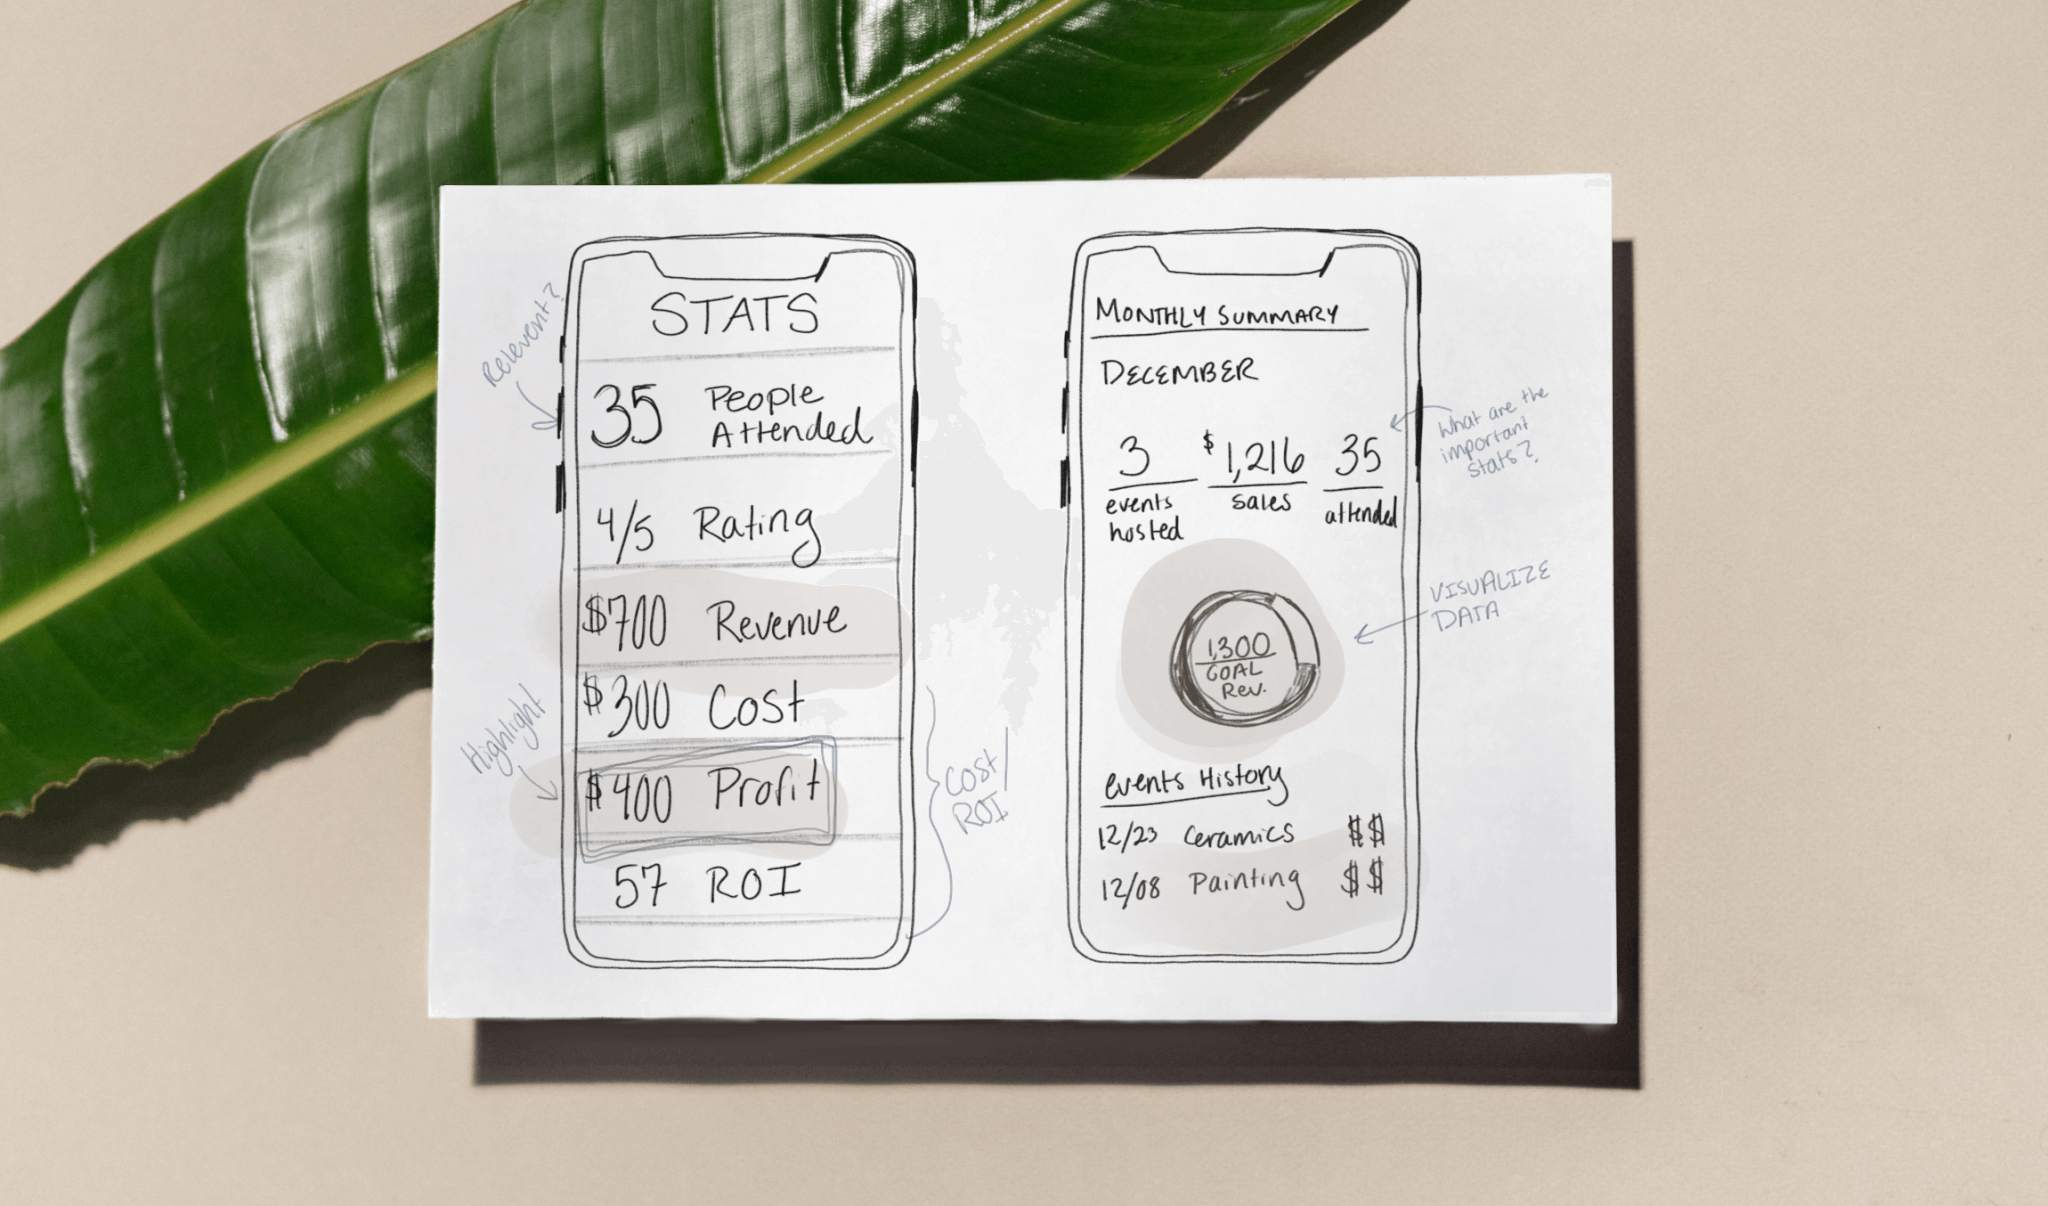 Relevent?
STATS
35 People
Attended
4/5 Rating
$700 Revenue
$300 Cost
Highlight
$400 Profit
57 ROI
Cost/
ROI
MONTHLY SUMMARY
DECEMBER
3 $1,216 35
events sales attended
hosted
What are the
important
Stats?
VISUALIZE
DATA
1,300
GOAL
Rev.
events History
12/23 Ceramics $$
12/08 Painting $$